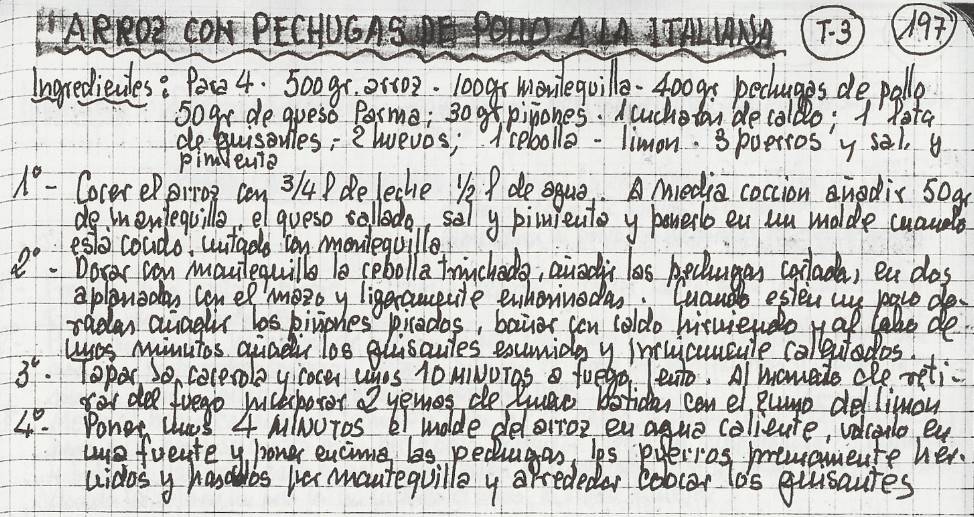 "ARROZ CON PECHUGAS DE POLLO A LA ITALIANA T-3 197
Ingredientes: Para 4. 500gr. arroz - 100gr mantequilla - 400gr pechugas de pollo
50gr de queso Parma; 30gr piñones. 1 cucharon de caldo; 1 lata
de guisantes; - 2 huevos; 1 cebolla - limon. 3 puerros y sal, y
pimienta
1º- Cocer el arroz con 3/4 l de leche 1/2 l de agua. A media coccion añadir 50gr
de mantequilla, el queso rallado, sal y pimienta y ponerlo en un molde cuando
está cocido, untado con mantequilla
2º- Dorar con mantequilla la cebolla trinchada, añadir las pechugas cortadas en dos
aplanadas con el mazo y ligeramente enharinadas. Cuando estén un poco do-
radas añadir los piñones picados, bañar con caldo hirviendo y al cabo de
unos minutos añadir los guisantes escurridos y previamente calentados.
3º- Tapar la cacerola y cocer unos 10 MINUTOS a fuego lento. Al momento de reti-
rar del fuego incorporar 2 yemas de huevo batidas con el zumo del limon
4º- Poner unos 4 MINUTOS el molde del arroz en agua caliente, volcarlo en
una fuente y poner encima las pechugas, los puerros previamente her-
vidos y pasados por mantequilla y alrededor colocar los guisantes